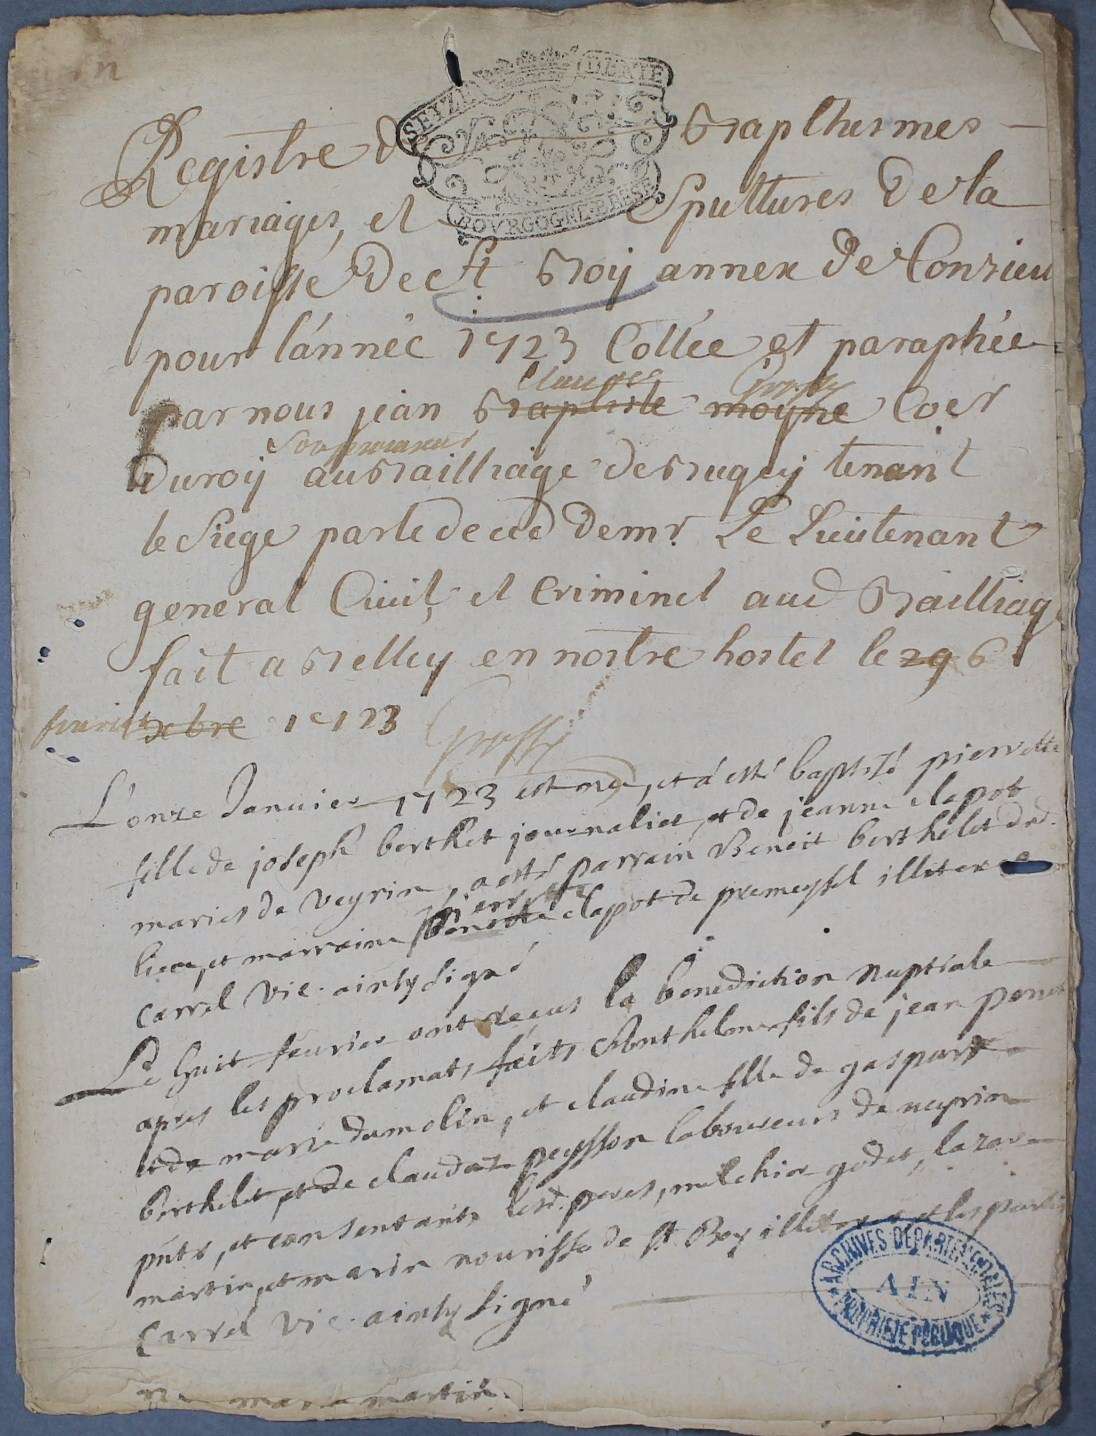 SEYZE DENIE
BOVRGOGNE BRESSE
Registre d Bapthesmes
mariages, et Spulttures de la
paroisse de st Boij annex de Conzieu
pour l'année 1723 Collée et paraphée
claude Grossy
par nous jean Baptiste moyne Coer
du roij au Bailliage de Bugey tenant
le siege par le deced de mr. Le Lieutenant
general Civil, et Criminel aud Bailliage
fait a Belley en nostre hostel le 29 6
fevrier xbre 1723
Grossy
L'onze Janvier 1723 est née, et a esté baptisé pierrette
fille de joseph berthet journalier, et de jeanne clapot
mariés de veyrin, a esté parrain Benoit berthelet dud.
pierrette
lieu, et marraine benoite clapot de premeysel illiter
Carrel Vic. ainsy signé
Le huit fevrier ont receus la benediction nuptiale
apres les proclamats faits Anthelme fils de jean ponet
et de marie dumolin, et claudine fille de gaspard
berthelet, et de claudaz peysson laboureurs de veyrin
pnts, et consentants lesd. peres, melchior godet, lazare
martin, et marin nourisse de st Boy illiter et les parties
Carrel Vic. ainsy signé
ARCHIVES DÉPARTEMENTALES
AIN
PROPRIÉTÉ PUBLIQUE
martin